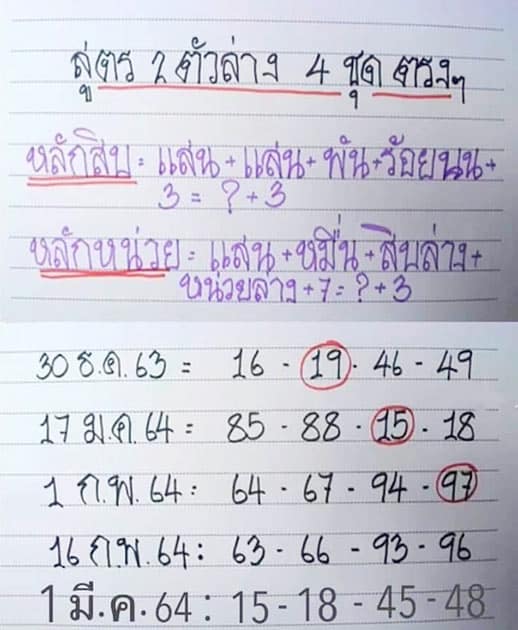 สูตร 2 ตัวล่าง 4 ชุด ตรงๆ
หลักสิบ = แสน + แสน + พัน + ร้อยบน +
3 = ? + 3
หลักหน่วย = แสน + หมื่น + สิบล่าง +
หน่วยล่าง + 7 = ? + 3
30 ธ.ค. 63 = 16 - 19 - 46 - 49
17 ม.ค. 64 = 85 - 88 - 15 - 18
1 ก.พ. 64 : 64 - 67 - 94 - 97
16 ก.พ. 64 : 63 - 66 - 93 - 96
1 มี.ค. 64 : 15 - 18 - 45 - 48